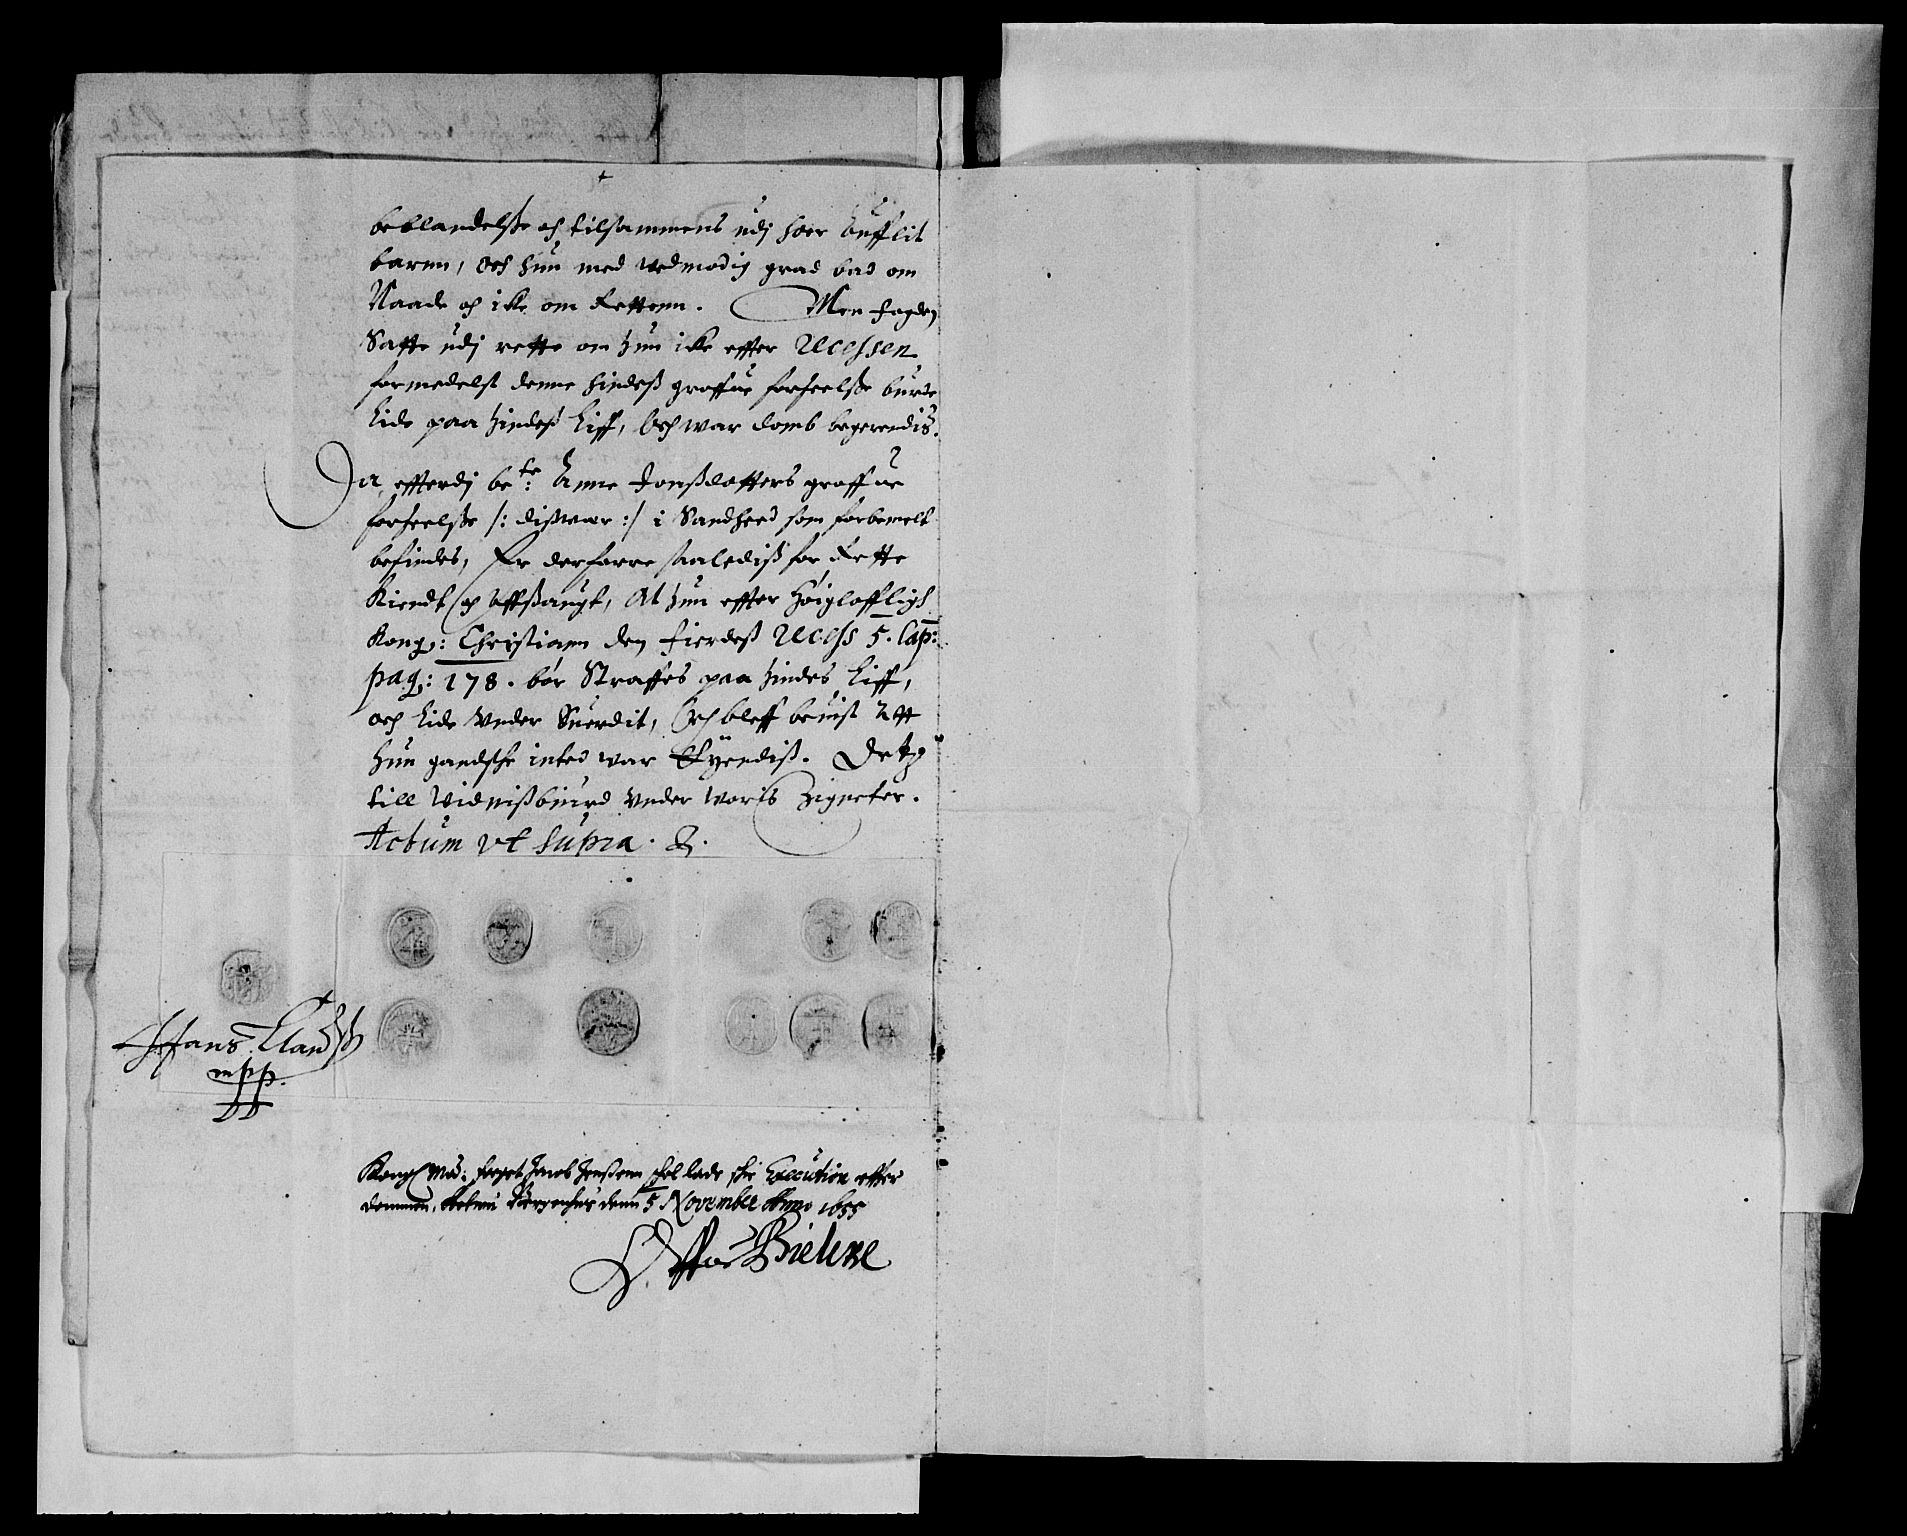 beblandelße och tilsammens udj hoer aufflit
barnn, och hun med vedmodig graad bad om
Naade och icke om Rettenn. Men fogden
Satte udj rette om hun icke effter Recessen
formedelst denne hindeß groffue forseelße burde
Lide paa hindeß Liff, Och war domb begerendiß.
Da efferdj be:te Anne Jonßdatters groffue
forseelße /: dißwær :/ i Sandheed som forbemelt
befindes, Er derforre saalediß for Rette
Kiendt och Affßaugt, At hun effter høigloffligh
Kong: Christiann den fierdeß Recess 5. Cap:
pag: 178. bør Straffes paa hindes Liff,
och Lide under Suerdit, Och bleff beuist att
hun gandsche inted war Eÿendiß. Detz
till Vidnißbiurd under woris Zigneter.
Actum ut supra. &.
Hans Clauß
mpp.
Kongl Maÿ: foget Jacob Jenßenn schal lade schie Execution effter
dommen, Actum Bergenhus denn 5 November Anno 1655
Bielcke